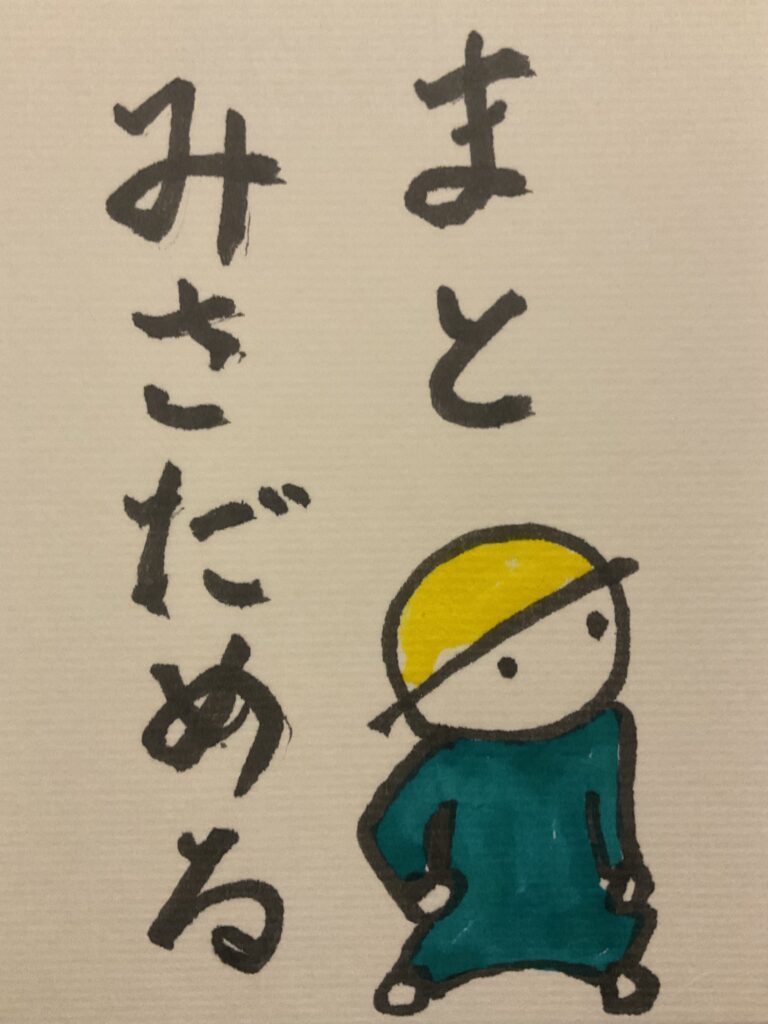 まと
みさだめる